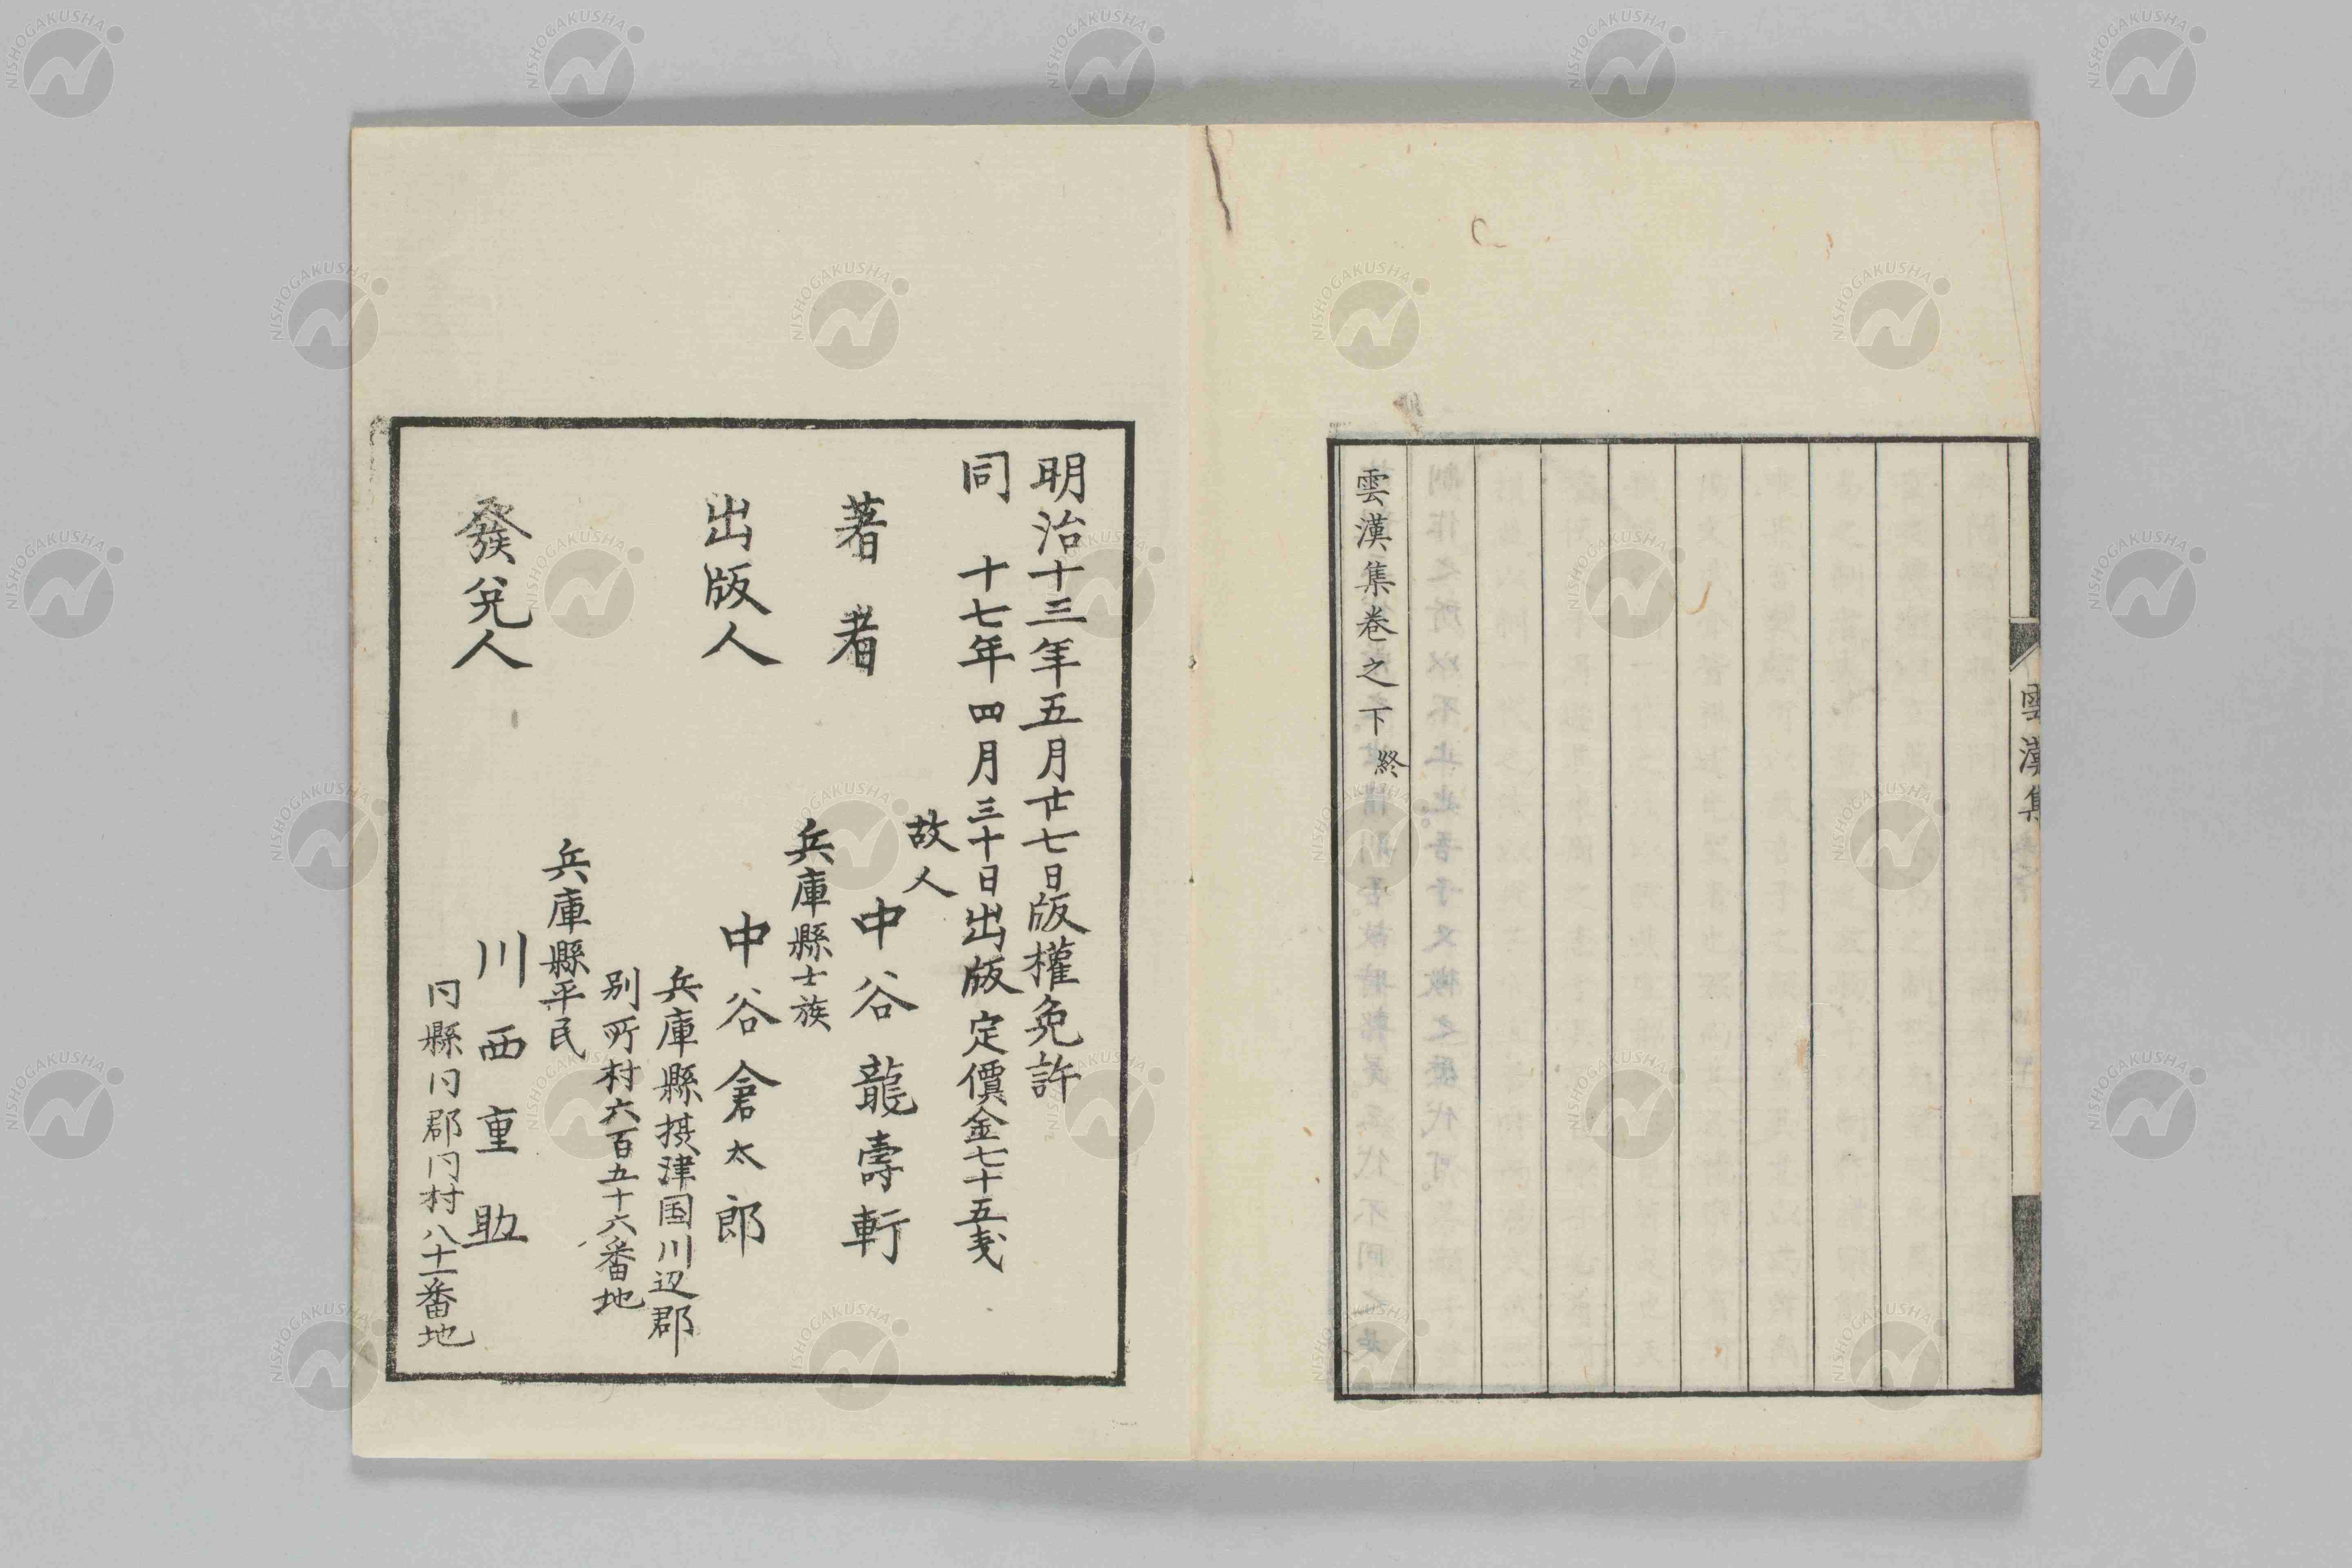 雲漢集
雲漢集卷之下終
明治十三年五月廿七日版權免許
同 十七年四月三十日出版定價金七十五戔
故人
著者 中谷龍壽軒
兵庫縣士族
出版人 中谷倉太郎
兵庫縣摂津国川辺郡
別所村六百五十六番地
兵庫縣平民
發兌人 川西重助
同縣同郡同村八十一番地
NISHOGAKUSHA